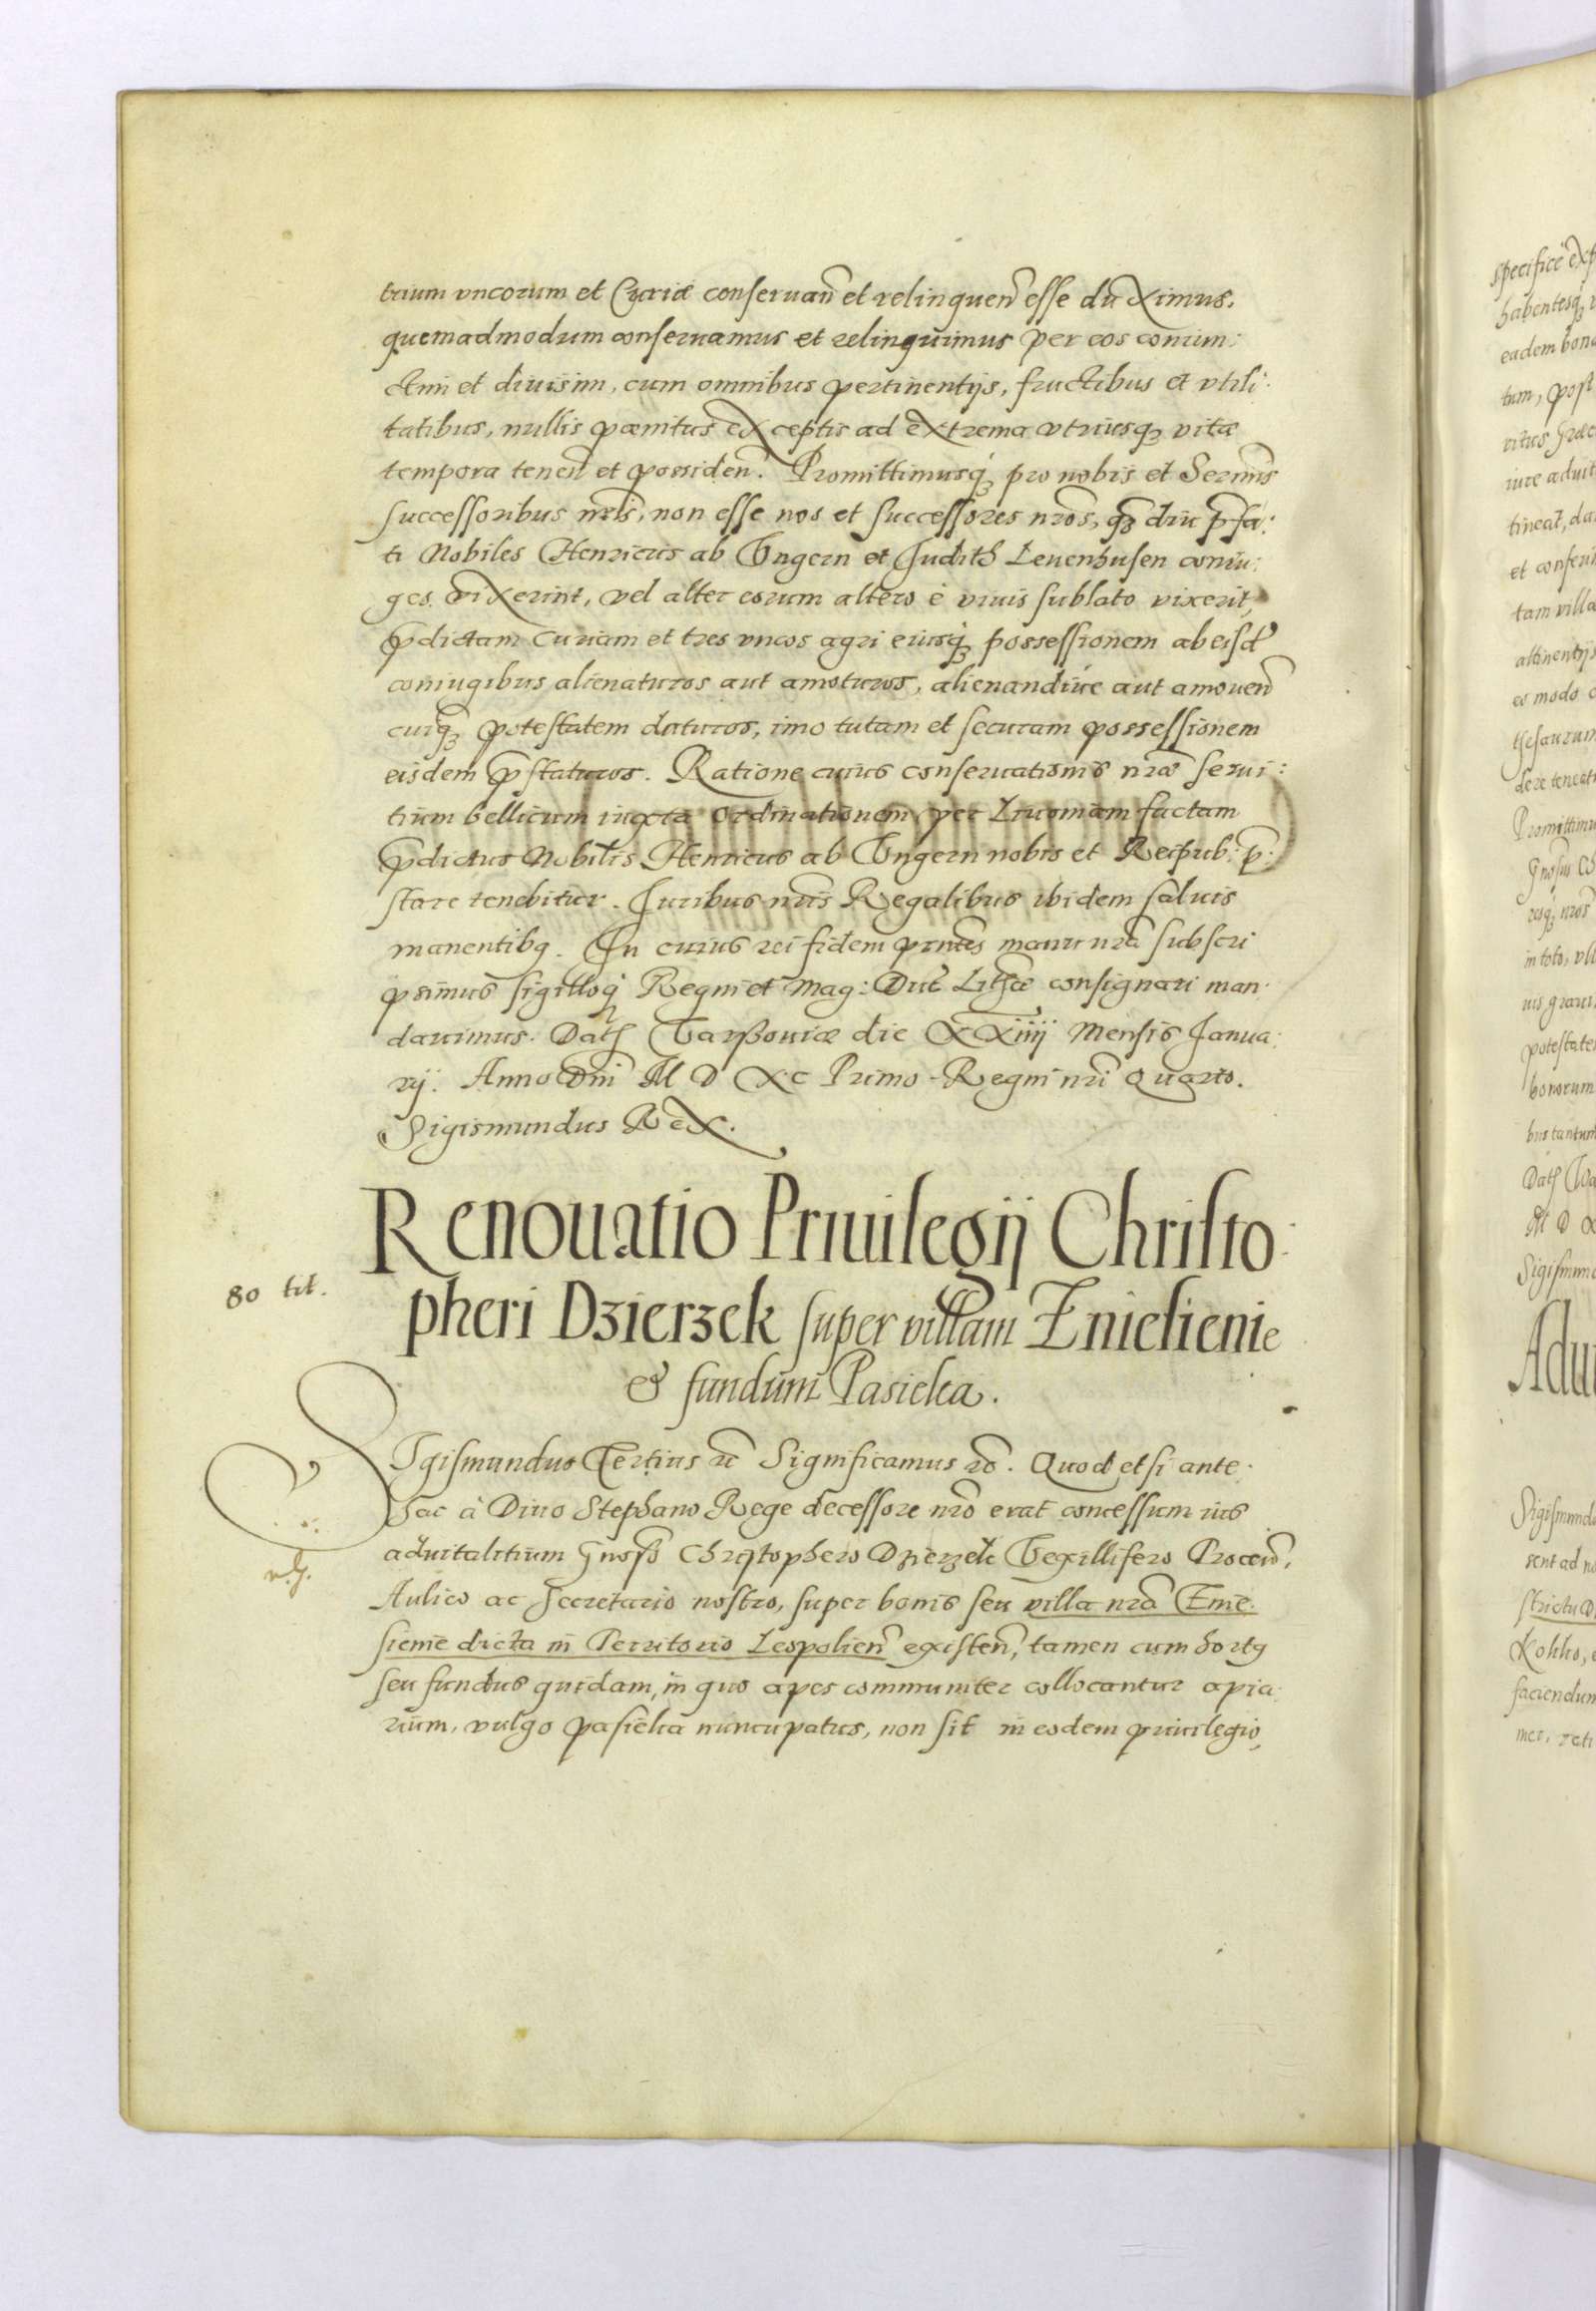 trium vncorum et Curiæ conseruan̄ et relinquen̄ esse duximus.
quemadmodum conseruamus et relinquimus per eos coniun:
ctim et diuisim, cum omnibus pertinentijs, fructibus et vtili:
tatibus, nullis pœnitus exceptis ad extrema vtriusqꝫ vitæ
tempora tenen̄ et possiden̄. Promittimusqꝫ pro nobis et Sermis
successoribus nr̄is, non esse nos et successores nr̄os, qꝫ diu p̄fa:
ti Nobiles Henricus ab Vngern et Judith Leuenhusen coniu:
ges vixerint, vel alter eorum altero è viuis sublato vixerit,
p̄dictam Curiam et tres vncos agri eiusqꝫ possessionem ab eisd̄
coniugibus alienaturos aut amoturos, alienandiue aut amouen̄
cuiqꝫ potestatem daturos, imo tutam et securam possessionem
eisdem p̄staturos. Ratione cuius conseruationis nr̄æ serui:
tium bellicum iuxta ordinationem per Liuoniam factam
p̄dictus Nobilis Henricus ab Vngern nobis et Reipub: p̄:
stare tenebitur. Juribus nr̄is Regalibus ibidem saluis
manentibq. In cuius rei fidem pn̄tes manu nr̄a subscri
psimus sigilloq̀ Regni et Mag: Duc̄ Lithæ consignari man:
dauimus. Dat Varßouiæ die XXiiij Mensis Janua:
rij. Anno Dn̄i M D XC Primo Regni nr̄i Quarto.
Sigismundus Rex.
Renouatio Priuilegij Christo:
80 tit.
pheri Dzierzek super villam Zniesienie
& fundum Pasieka.
SIgismundus Tertius rc̄ Significamus rc̄. Quod etsi ante:
hac à Diuo Stephano Rege decessore nr̄o erat concessum ius
aduitalitium Gnoso Christophero Dzierzek Vexillifero
Aulico ac Secretario nostro, super bonis seu villa nr̄a
sienie dicta in Territorio Leopolien̄ existen̄, tamen cum hortq
seu fundus quidam, in quo apes communiter collocantur apia:
rium, vulgo pasieka nuncupatus, non sit in eodem priuilegio,
specifice exp
habentesqꝫ
eadem bona
tum, post
iure aduit
tineat, da
et conferi
tam villa
attinentijs
eo modo
thesaurum
dere teneat
Promittimu
in toto,
potestate
bonorum
bus tantum
M D
Sigismun
Adui
Sigismundu
sent ad no
faciendum